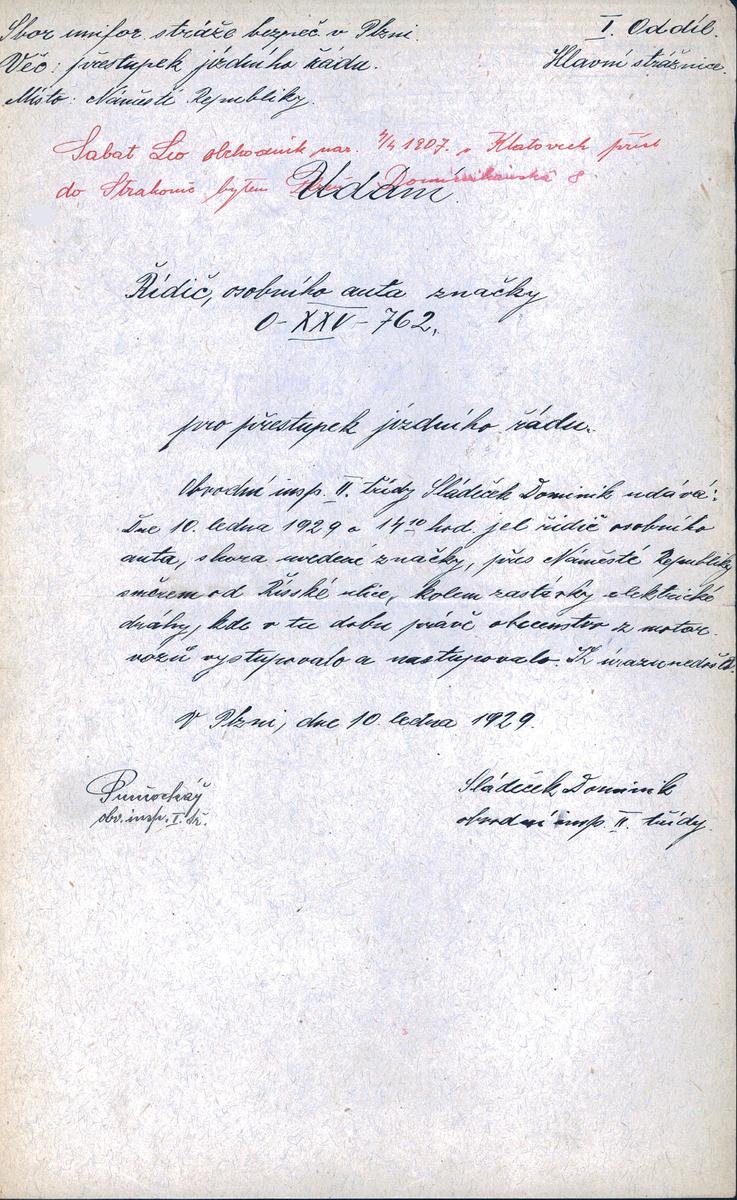 Sbor unifor. stráže bezpeč v Plzni.
I. Oddíl.
Věc: přestupek jízdního řádu.
Hlavní strážnice.
Místo: Náměstí Republiky.
Sabat Leo obchodník nar. 4/4 1907. v Klatovech přísl
do Strakonic bytem Plzeň Dominikánská 8.
Udání.
Řidič, osobního auta značky
O-XXV-762.
pro přestupek jízdního řádu.
Obvodní insp. II. třídy Sládeček Dominik udává:
Dne 10. ledna 1929 o 14¹⁰ hod. jel řidič osobního
auta, shora uvedené značky, přes Náměstí Republiky
směrem od Říšské ulice, kolem zastávky elektrické
dráhy, kde v tu dobu právě obecenstvo z motor.
vozů vystupovalo a nastupovalo. K úrazu nedošlo.
V Plzni, dne 10. ledna 1929.
obv. insp. I. tř.
Sládeček Dominik
obvodní insp. II. třídy.